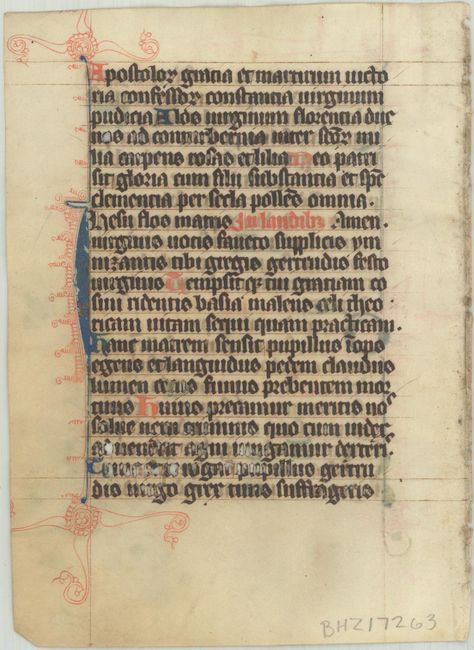 Apostolor gracia et martirum victo
ria confessor constancia virginum
pudicia Ad os virginum florencia duc
nos ad contubernia inter scor mi
lia carpens rosas et lilia Deo patri
sit gloria cum filii substantia et spc
clemencia per secla pollens omnia.
Jhesu flos matris In laudibz Amen
virginis votis faveto supplicis ym
nizantis tibi gregis gertrudis festo
virginis Tempsit gr tui graciam
sivi ridentis basia malens celi theo
ricam vitam sequi quam practicam.
hanc matrem sensit pupillus inops
egenus et languidus pedem claudus
lumen cecus funus prebentem mor
tuus Huius precamur meritis nos
salve vera quo cum iudex
advenerit agni iungamur dexteri.
pupillus gertru
dis virgo grex tuus suffrageris
BHZ17263